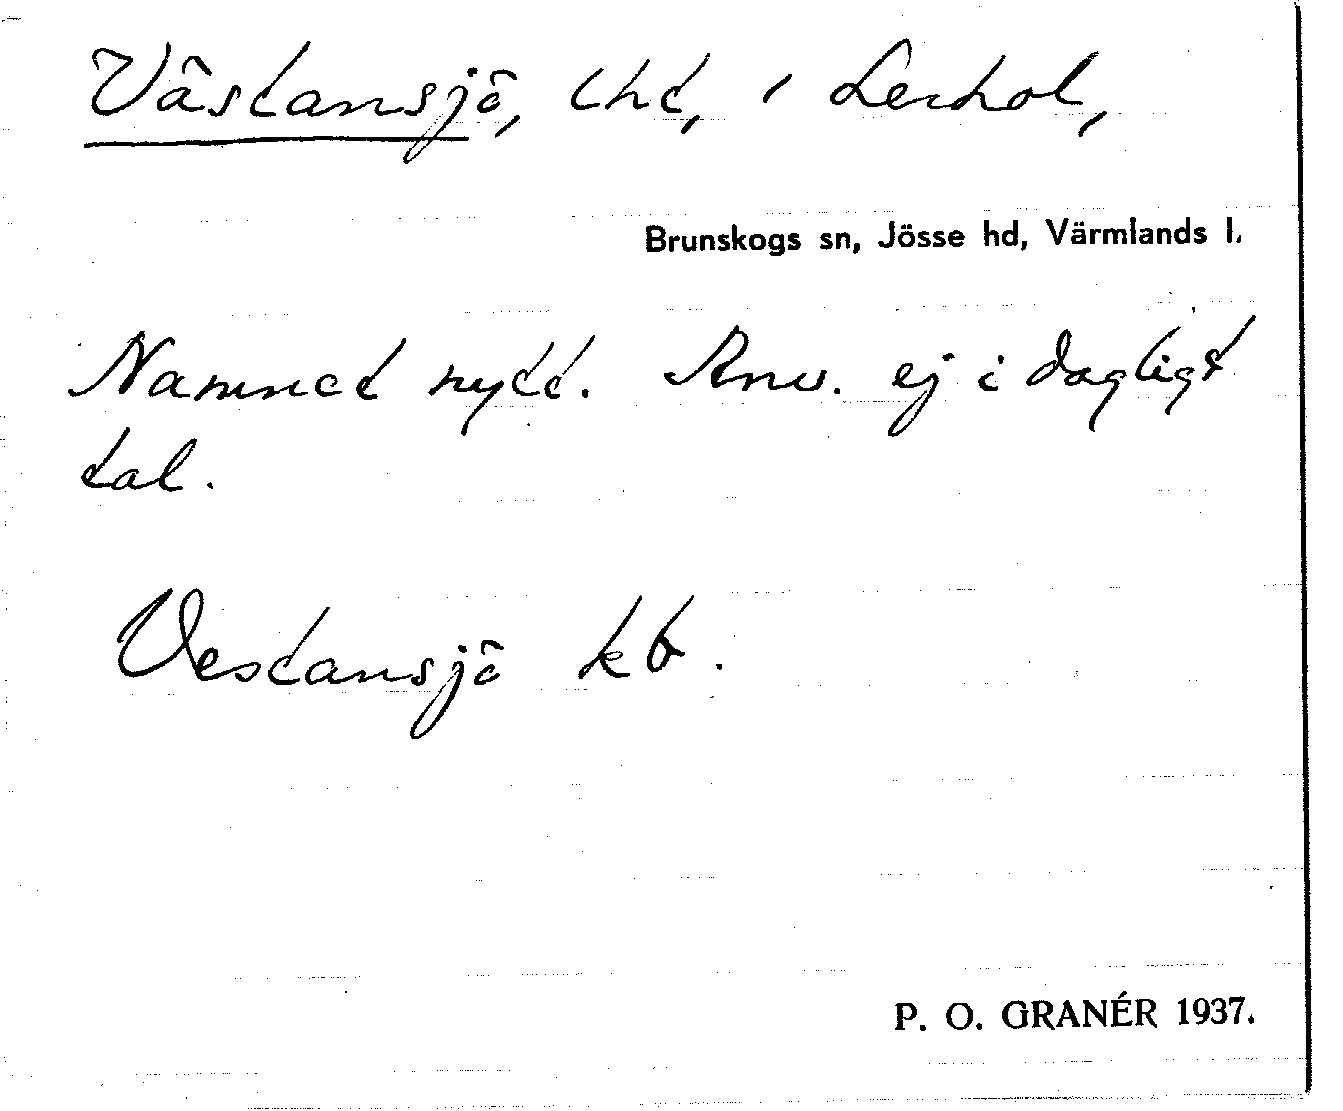 Västansjö, lht, i Lerhol,
Brunskogs sn, Jösse hd, Värmlands l.
Namnet nytt. Anv. ej i dagligt
tal.
Vestansjö kb.
P. O. GRANÉR 1937.